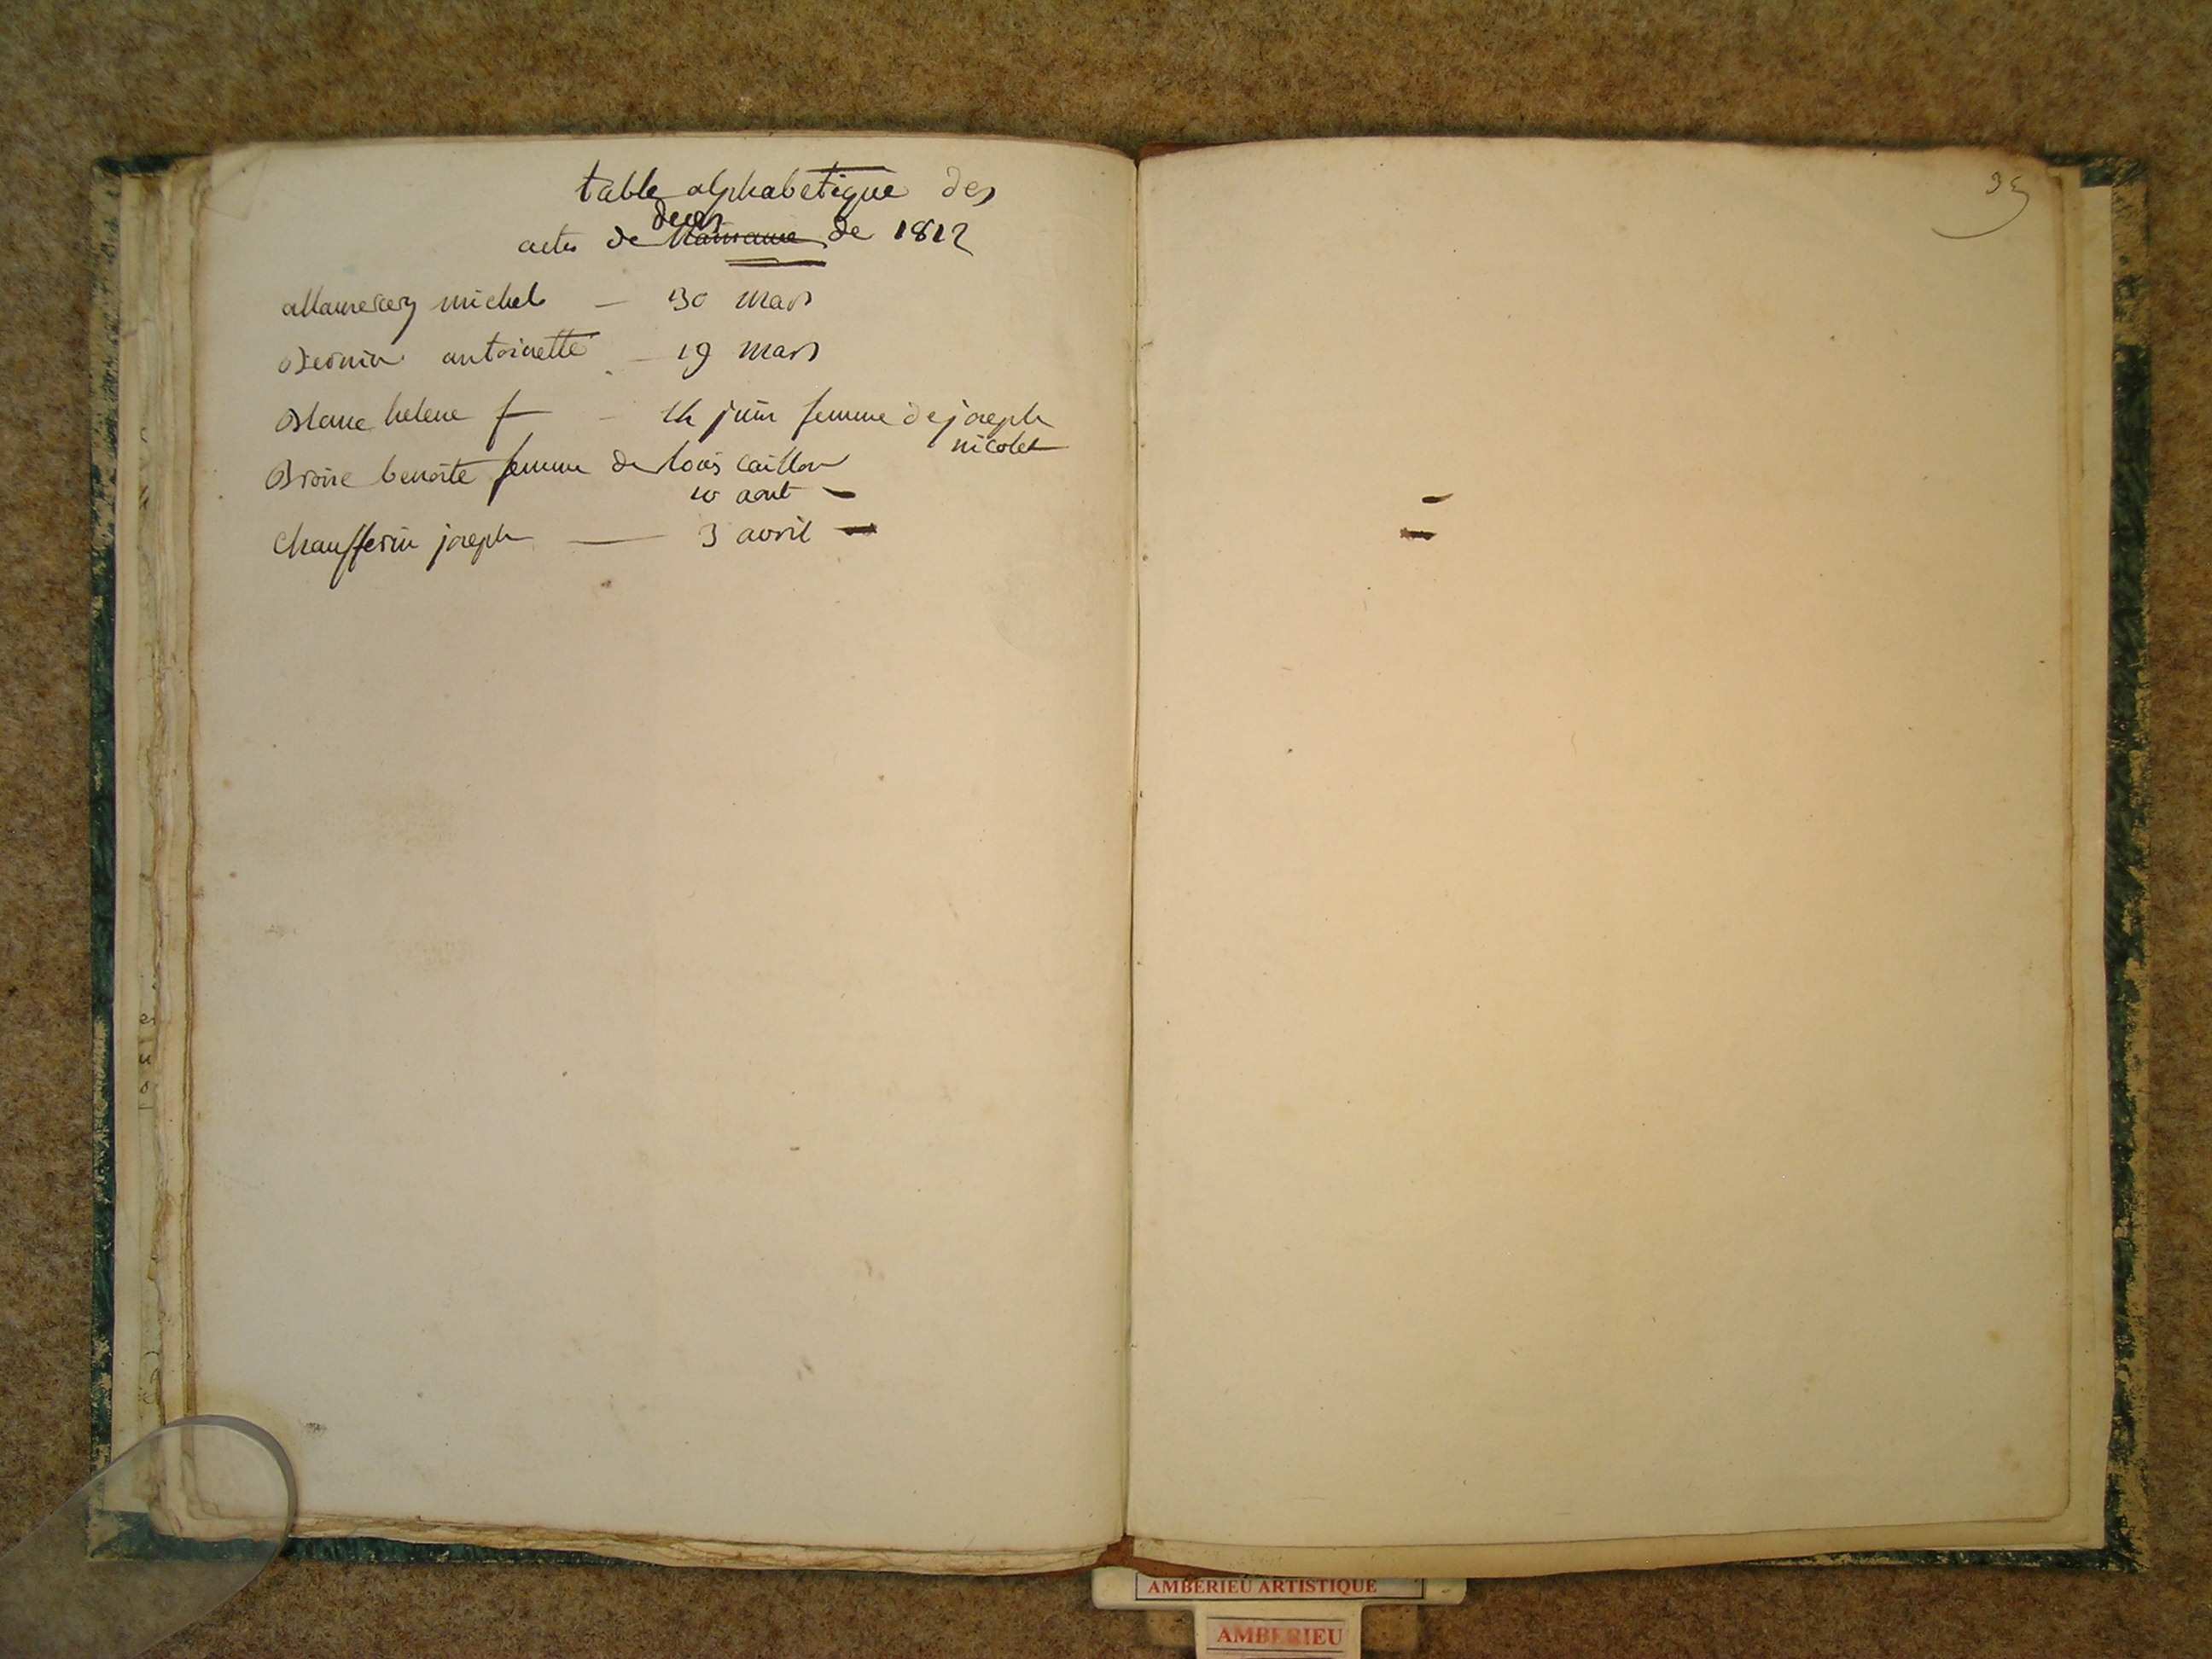 table alphabetique des
deces
actes de Naissance de 1812
allamercery michel — 30 mars
Bernin antoinette — 19 mars
Blanc helene f — 14 juin femme de joseph
nicolet
Broise benoite femme de louis caillon
10 aout —
Chaufferin joseph — 3 avril —
35
AMBERIEU ARTISTIQUE
AMBERIEU